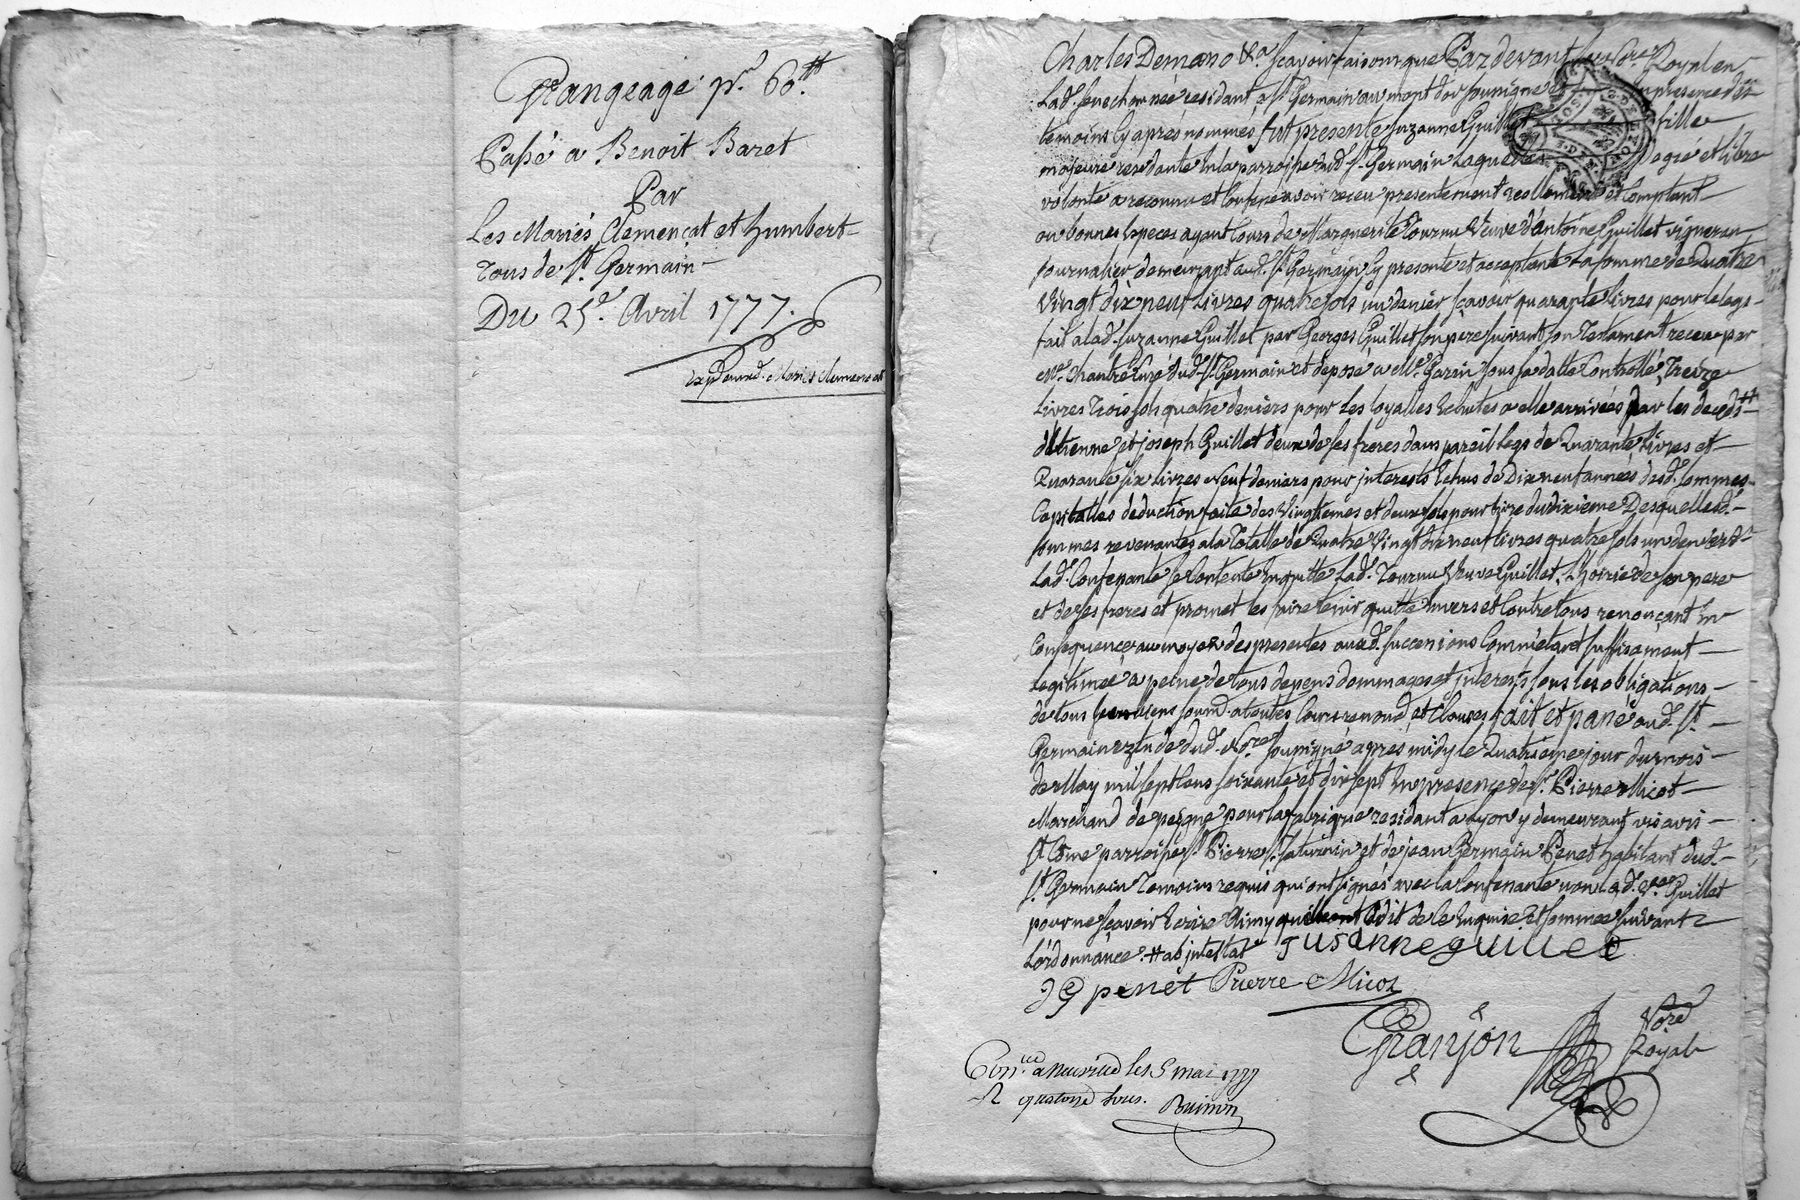 Grangeage pr. 60.tt
Passé a Benoit Baret
Par
Les Mariés Clemençat et humbert
Tous de st. Germain
Du 25e. Avril 1777.
Expd. auxd. Mariés Clemençat
Charles Demono &a. sçavoir faisons que Pardevant le No.re Royal en
Lad. senechaussée residant a st. Germain au mont dor soussigné et en presence des
temoins cy après nommés fut presente suzanne Guillet fille
majeure residante en la parroisse dud. st. Germain Laquelle de gré et libre
volonté a reconnu et confessé avoir receu presentement reellement et comptant
en bonnes especes ayant cours de Marguerite Tournu Veuve d'antoine Guillet vigneron
journalier demeurant aud. st. Germain cy presente et acceptante La somme de Quatre
Vingt dix neuf Livres quatre sols un denier sçavoir quarante livres pour le legs
fait a lad. suzanne Guillet par Georges Guillet son pere suivant son Testament receu par
Mre. Chantre Curé dud. st. Germain et deposé a Me. Garin sous sa datte Controllé, Treize
Livres Trois sols quatre deniers pour Les loyalles Echutes a elle arrivées par les deceds tt
d'Etienne et joseph Guillet deux de ses freres dans pareil legs de Quarante livres et
Quarante six livres Neuf deniers pour interests Echus de Dix neuf années desd. sommes
Capitalles deduction faite des Vingtiemes et deux sols pour livre du dixieme Desquelles d.
sommes revenantes a la Totalle de Quatre Vingt dix neuf livres quatre sols un denier
Lad. Confessante se Contente en quitte Lad. Tournu Veuve Guillet, L'hoirie de son pere
et de ses freres et promet les faire tenir quitte envers et Contre tous renonçant En
Consequence au moyen des presentes auxd. successions Comme etant suffisament
Legitimée a peine de tous depens dommages et interests sous les obligations
de tous ses biens soumd. a toutes Cours renond. et Clauses fait et passé aud. st.
Germain Etude dud. No.re soussigné après midy le Quatrieme jour du mois
de May mil sept Cens soixante et dix sept En presence de sr. Pierre Micot
Marchand de peigne pour la fabrique residant a Lyon y demeurant vis avis
st. Côme parroisse st. Pierre st. saturnin et de jean Germain Penet habitant dud.
st. Germain Temoins requis qui ont signés avec la Confessante non Lad. Veuve Guillet
pour ne sçavoir Ecrire Ainsy qu'elle a dit de ce Enquise et sommée suivant
L'ordonnance. tt ab intestat Susanne guillet
J G penet Pierre Micoz
Granjon Nore
Royal
Conlé. a Neuville le 5 mai 1777
R quatorze sous.